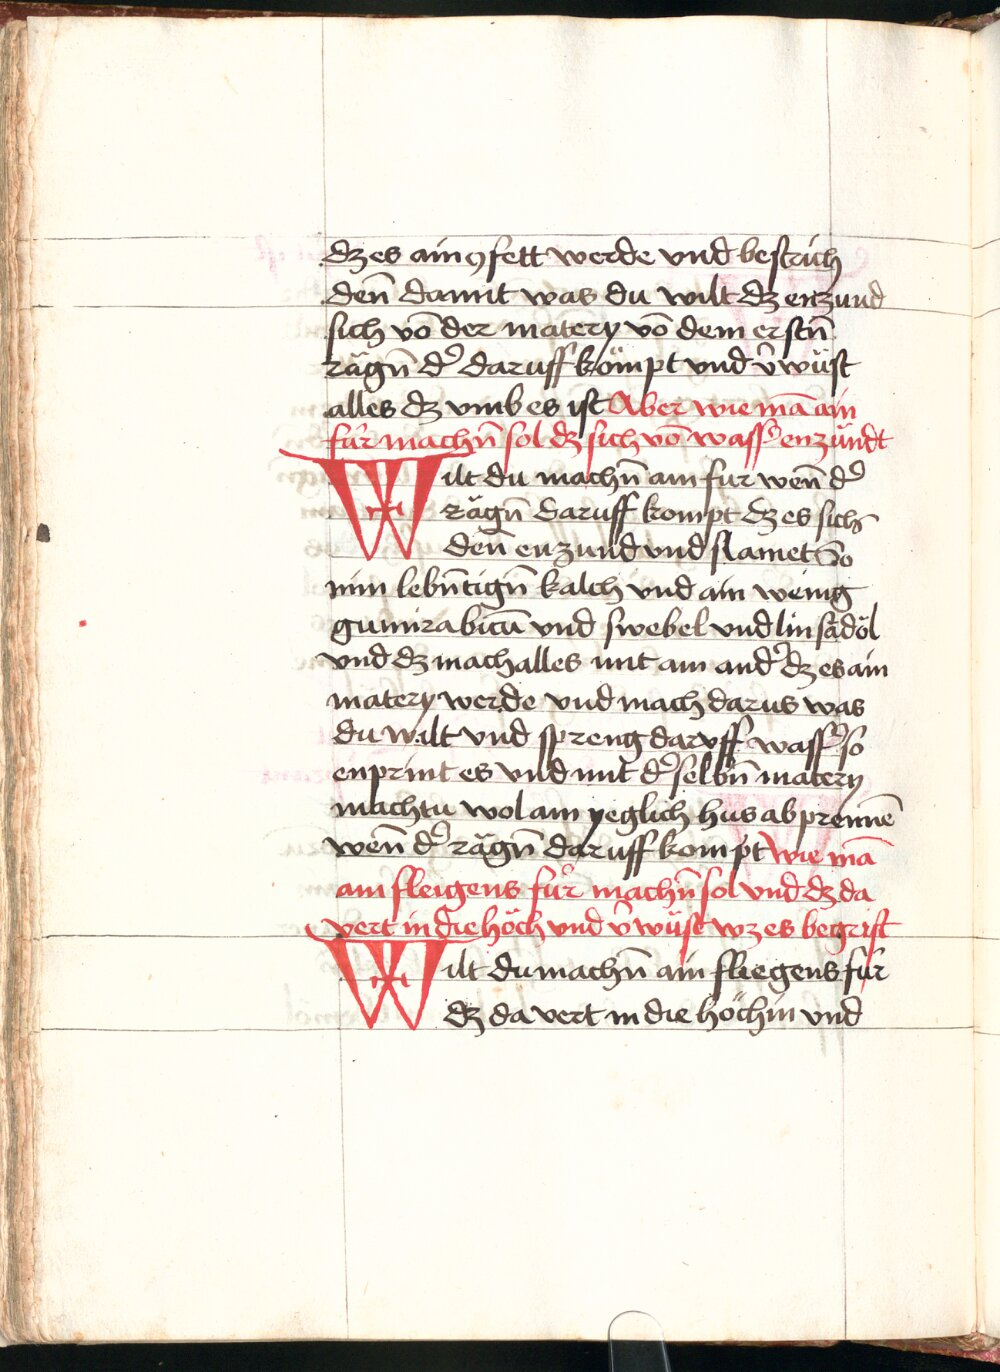 dz es ain ꝯfett werde vnd bestrich
den̄ damit was du wilt dz enzund
sich vō der matery vō dem erstn̄
rägn̄ d͛ daruff kömpt vnd v̄wüst
alles dz vmb es ist Aber wie mā ain
für machn̄ sol dz sich vō wass͛ enzündt
Wilt du machn̄ ain fur wen̄ d͛
rägn̄ daruff kompt dz es sich
den̄ enzund vnd flamet So
nim lebn̄tign̄ kalch vnd ain wenig
gumi rabicū vnd swebel vnd lin sādöl
vnd dz mach alles mit ain and͛ dz es ain
matery werde vnd mach darus was
du wilt vnd spreng daruff wass͛ so
enprint es vnd mit d͛ selbn̄ matery
machtu wol ain yeglich hus ab prennē
wen̄ d͛ rägn̄ daruff kompt wie mā
ain fleigens für machn̄ sol vnd dz da
vert in die höch vnd v̄wüst wz es begrift
Wilt du machn̄ ain fliegens für
dz da vert in die höchin vnd